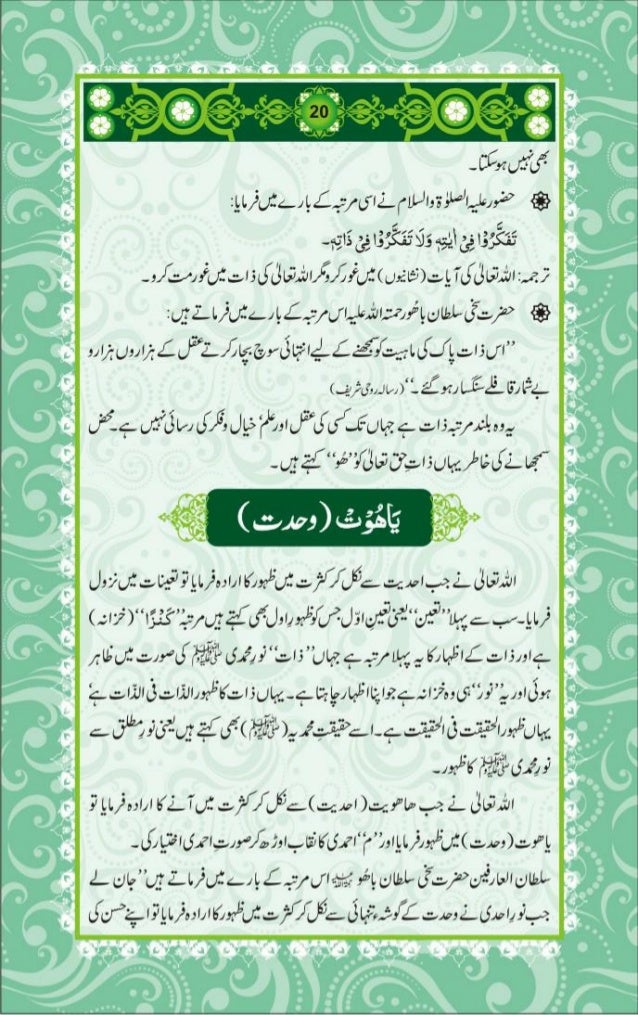 20
بھی نہیں ہو سکتا۔
حضور علیہ الصلوٰۃ والسلام نے اسی مرتبہ کے بارے میں فرمایا:
تَفَكَّرُوْا فِیْ اٰیٰتِہٖ وَلَا تَفَكَّرُوْا فِیْ ذَاتِہٖ۔
ترجمہ: اللہ تعالیٰ کی آیات (نشانیوں) میں غور کرو مگر اللہ تعالیٰ کی ذات میں غور مت کرو۔
حضرت سخی سلطان باھُو رحمتہ اللہ علیہ اس مرتبہ کے بارے میں فرماتے ہیں:
’’اس ذات پاک کی ماہیت کو سمجھنے کے لیے انتہائی سوچ بچار کرتے عقل کے ہزاروں ہزار و
بے شمار قافلے سنگسار ہو گئے۔‘‘ (رسالہ روحی شریف)
یہ وہ بلند مرتبہ ذات ہے جہاں تک کسی کی عقل اور علم‘ خیال و فکر کی رسائی نہیں ہے۔ محض
سمجھانے کی خاطر یہاں ذاتِ حق تعالیٰ کو ’’ھُو‘‘ کہتے ہیں۔
یَاھُوْتْ (وحدت)
اللہ تعالیٰ نے جب احدیت سے نکل کر کثرت میں ظہور کا ارادہ فرمایا تو تعینات میں نزول
فرمایا۔ سب سے پہلا ’’تعین‘‘ یعنی تعینِ اوّل جس کو ظہورِ اول بھی کہتے ہیں مرتبہ ’’کَنْزًا‘‘ (خزانہ)
ہے اور ذات کے اظہار کا یہ پہلا مرتبہ ہے جہاں ’’ذات‘‘ نورِ محمدی ﷺ کی صورت میں ظاہر
ہوئی اور یہ ’’نور‘‘ ہی وہ خزانہ ہے جو اپنا اظہار چاہتا ہے۔ یہاں ذات کا ظہور الذّات فی الذّات ہے‘
یہاں ظہور الحقیقت فی الحقیقت ہے۔ اسے حقیقتِ محمدیہ (ﷺ) بھی کہتے ہیں یعنی نورِ مطلق سے
نورِ محمدی ﷺ کا ظہور۔
اللہ تعالیٰ نے جب ھاھویت (احدیت) سے نکل کر کثرت میں آنے کا ارادہ فرمایا تو
یاھوت (وحدت) میں ظہور فرمایا اور ’’م‘‘ احمدی کا نقاب اوڑھ کر صورتِ احمدی اختیار کی۔
سلطان العارفین حضرت سخی سلطان باھُو اس مرتبہ کے بارے میں فرماتے ہیں ’’جان لے
جب نورِ احدی نے وحدت کے گوشۂ تنہائی سے نکل کر کثرت میں ظہور کا ارادہ فرمایا تو اپنے حسن کی